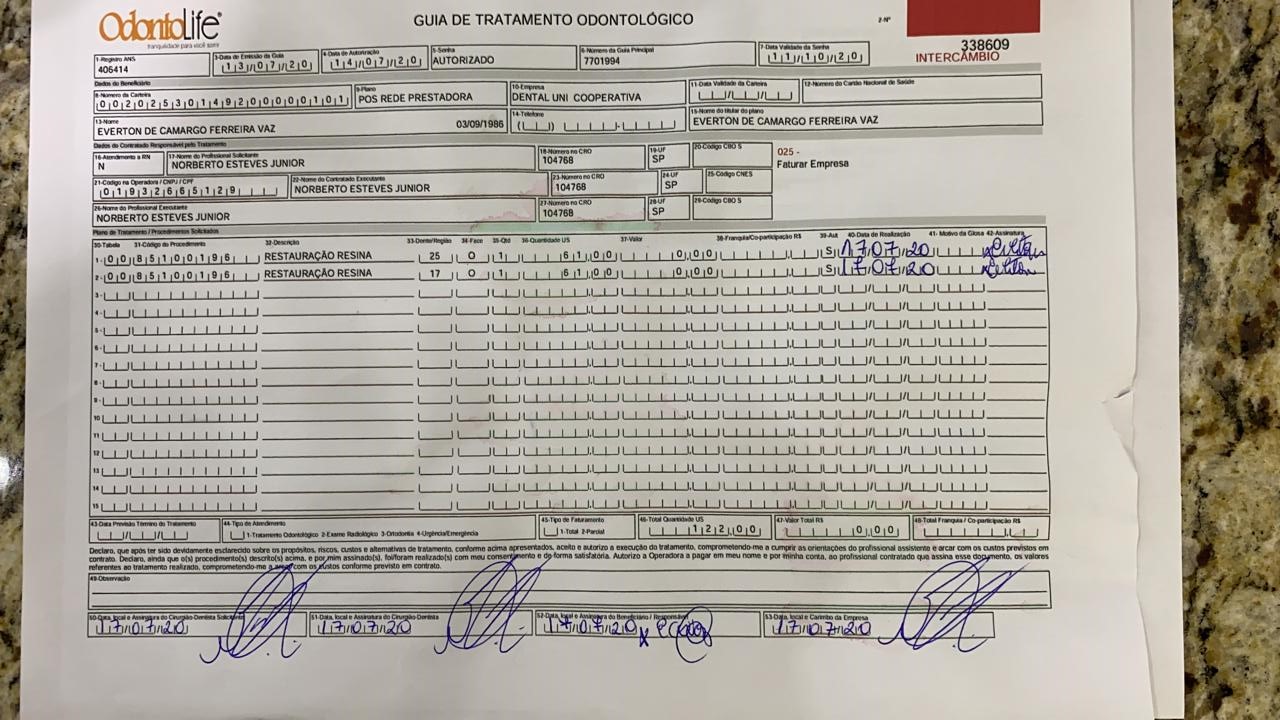 OdontoLife®
tranquilidade para você sorrir
GUIA DE TRATAMENTO ODONTOLÓGICO
2-Nº
338609
INTERCÂMBIO
1-Registro ANS
406414
3-Data de Emissão da Guia
13/07/20
4-Data de Autorização
14/07/20
5-Senha
AUTORIZADO
6-Número da Guia Principal
7701994
7-Data Validade da Senha
11/10/20
Dados do Beneficiário
8-Número da Carteira
00202530149200000101
9-Plano
POS REDE PRESTADORA
10-Empresa
DENTAL UNI COOPERATIVA
11-Data Validade da Carteira
12-Número do Cartão Nacional de Saúde
13-Nome
EVERTON DE CAMARGO FERREIRA VAZ 03/09/1986
14-Telefone
15-Nome do titular do plano
EVERTON DE CAMARGO FERREIRA VAZ
Dados do Contratado Responsável pelo Tratamento
16-Atendimento a RN
N
17-Nome do Profissional Solicitante
NORBERTO ESTEVES JUNIOR
18-Número no CRO
104768
19-UF
SP
20-Código CBO S
025 -
Faturar Empresa
21-Código na Operadora / CNPJ / CPF
01932665129
22-Nome do Contratado Executante
NORBERTO ESTEVES JUNIOR
23-Número no CRO
104768
24-UF
SP
25-Código CNES
26-Nome do Profissional Executante
NORBERTO ESTEVES JUNIOR
27-Número no CRO
104768
28-UF
SP
29-Código CBO S
Plano de Tratamento / Procedimentos Solicitados
30-Tabela 31-Código do Procedimento 32-Descrição 33-Dente/Região 34-Face 35-Qtd 36-Quantidade US 37-Valor 38-Franquia/Co-participação R$ 39-Aut 40-Data de Realização 41- Motivo da Glosa 42-Assinatura
1- 00 85100196 RESTAURAÇÃO RESINA 25 O 1 61,00 0,00 S 17/07/20
2- 00 85100196 RESTAURAÇÃO RESINA 17 O 1 61,00 0,00 S 17/07/20
3-
4-
5-
6-
7-
8-
9-
10
11
12
13
14
15
43-Data Previsão Término do Tratamento
44-Tipo de Atendimento
1-Tratamento Odontológico 2-Exame Radiológico 3-Ortodontia 4-Urgência/Emergência
45-Tipo de Faturamento
1-Total 2-Parcial
46-Total Quantidade US
122,00
47-Valor Total R$
0,00
48-Total Franquia / Co-participação R$
Declaro, que após ter sido devidamente esclarecido sobre os propósitos, riscos, custos e alternativas de tratamento, conforme acima apresentados, aceito e autorizo a execução do tratamento, comprometendo-me a cumprir as orientações do profissional assistente e arcar com os custos previstos em
contrato. Declaro, ainda que o(s) procedimento(s) descrito(s) acima, e por mim assinado(s), foi/foram realizado(s) com meu consentimento e de forma satisfatória. Autorizo a Operadora a pagar em meu nome e por minha conta, ao profissional contratado que assina esse documento, os valores
referentes ao tratamento realizado, comprometendo-me a arcar com os custos conforme previsto em contrato.
49-Observação
50-Data, local e Assinatura do Cirurgião-Dentista Solicitante
17/07/20
51-Data, local e Assinatura do Cirurgião-Dentista
17/07/20
52-Data, local e Assinatura do Beneficiário / Responsável
17/07/20
53-Data, local e Carimbo da Empresa
17/07/20